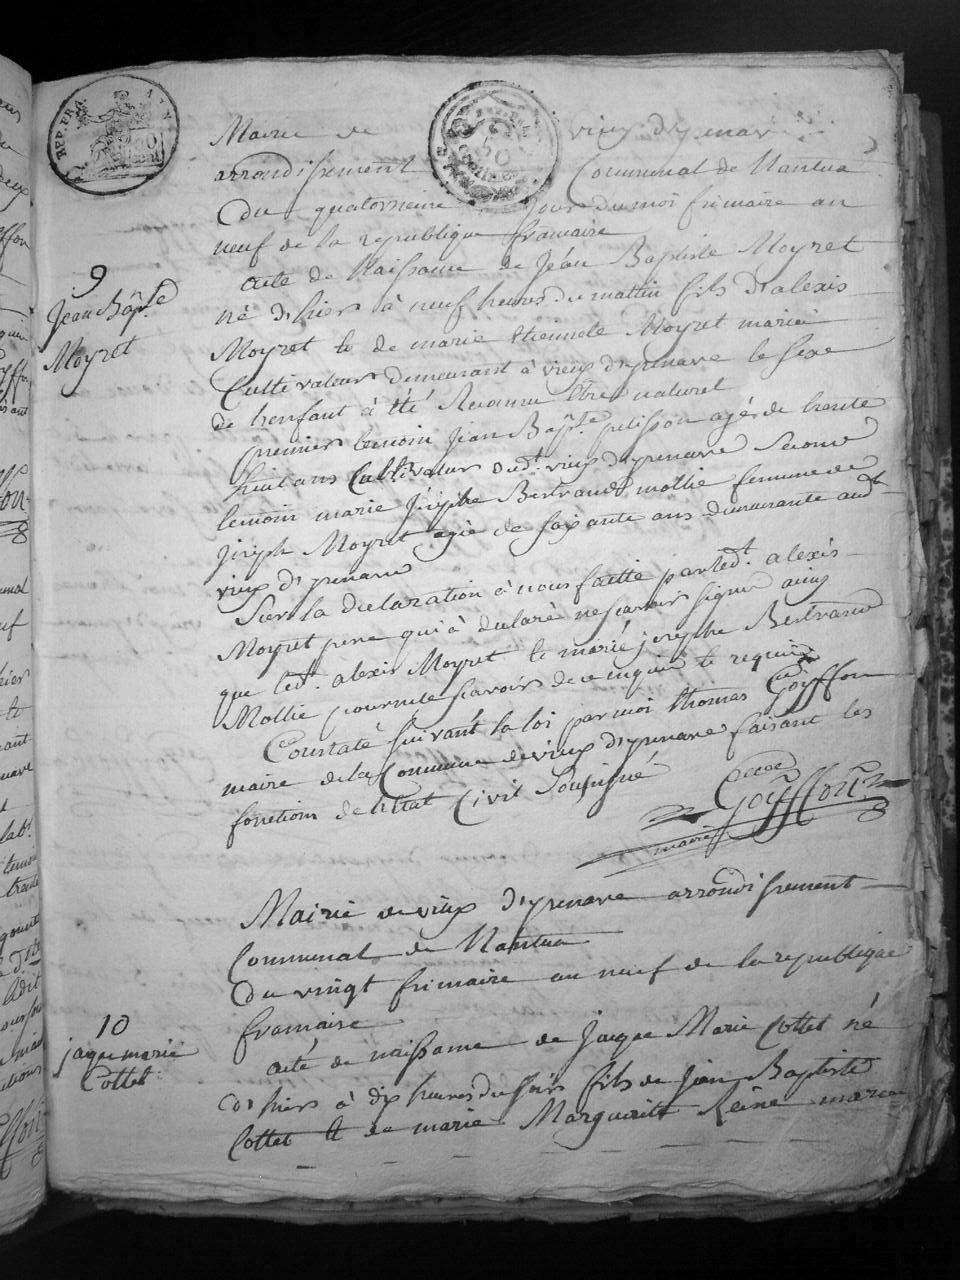 REP. FRA.
50
Mairie de vieux d'yzenave
arrondissement Communal de Nantua
Du quatorzieme jour du moi frimaire an
neuf de la republique francaise
9
Jean Bapte
Moyret
acte de Naissance de Jéan Baptiste Moyret
né d'hier à neuf heures du mattin fils d'alexis
Moyret et de marie etiennete Moyret mariés
Cultivateurs demeurant à vieux d'yzenave le sexe
de l'enfant à été Reconnu être naturel
premier temoin Jean Bapte pelisson agés de trente
huit ans Cultivateur dudt. vieux d'yzenave Second
temoin marie Josephe Bertrand mollie femme de
Joseph Moyret agée de soixante ans demeurante audt
vieux d'yzenave
Sur la declaration à nous faitte par ledt. alexis
Moyret pere qui à declaré ne scavoir signer ainsy
que ledt. alexis Moyret et marie josephe Bertrand
Mollie pour ne scavoir de ce enquis et requis
Constaté suivant la loi par moi thomas Goyffon
maire de la Commune de vieux d'yzenave faisant les
fonctions de l'état Civil Soussigné
Goyffon
maire
Mairie de vieux d'yzenave arrondissement
Communal de Nantua
Du vingt frimaire an neuf de la republique
francaise
10
jaque marie
Cottet
acte de naissance de Jacque Marie Cottet né
d'hier à dix heures du soir fils de Jean Baptiste
Cottet et de marie Marguerite Reine mariés